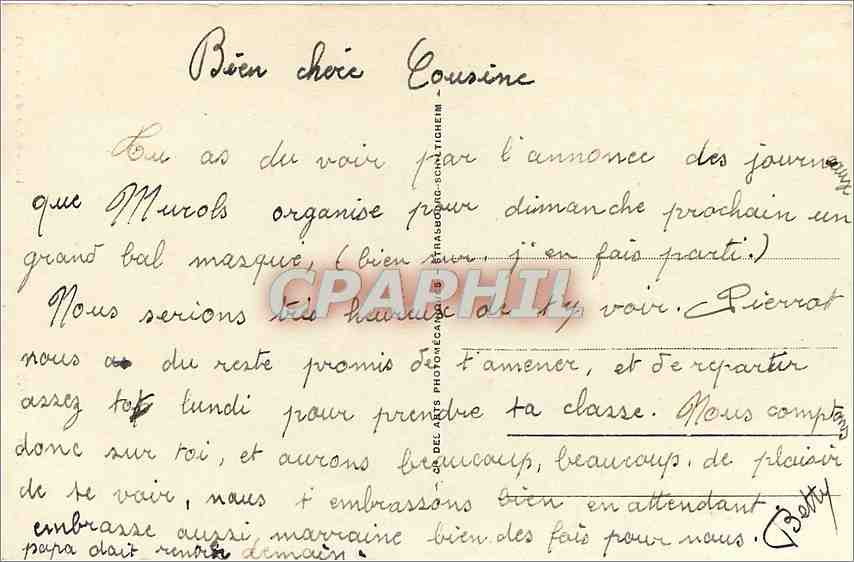 Bien chère Cousine
Tu as du voir par l'annonce des journaux
que Murols organise pour dimanche prochain un
grand bal masqué, (bien sur, j'en fais parti.)
Nous serions très heureux de t'y voir. Pierrot
nous a du reste promis de t'amener, et de repartir
assez tot lundi pour prendre ta classe. Nous comptons
donc sur toi, et aurons beaucoup, beaucoup, de plaisir
de te voir, nous t'embrassons bien en attendant
embrasse aussi marraine bien des fois pour nous. Betty
papa doit rentrer demain.
CPAPHIL
CIE DEL ARTS PHOTOMÉCANIQUES STRASBOURG-SCHILTIGHEIM